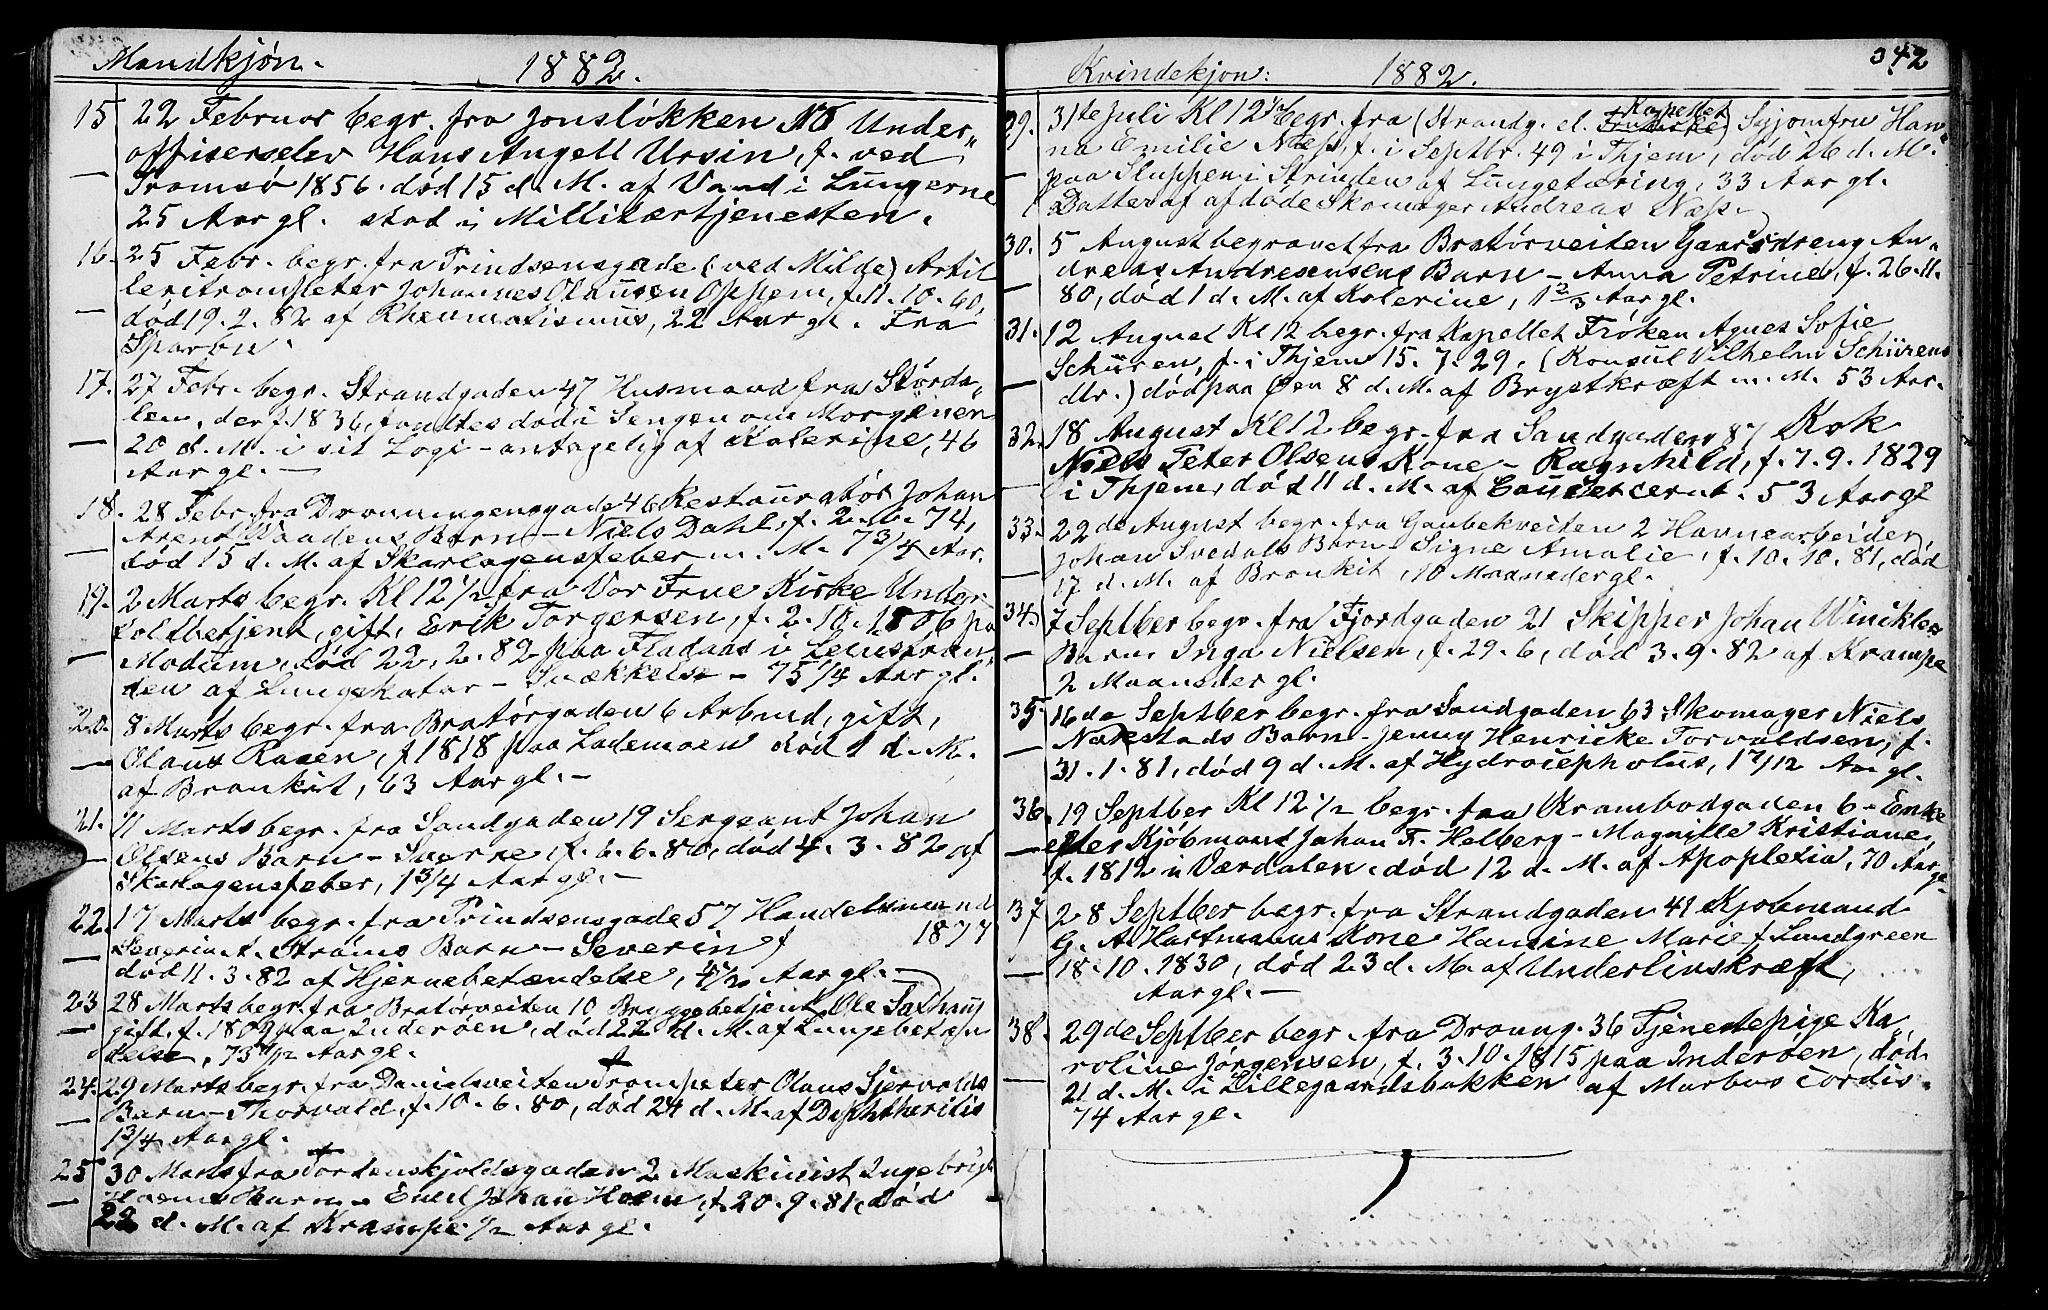 Mandkjøn. 1882.
15 22 Februar begr. fra Jonsløkken No Under„
officerselev Hans Angell Ursin, f. ved
— Tromsø 1856. død 15 d. M. af Vand i Lungerne
25 Aar gl. stod i Millitærtjenesten.
16. 25 Febr. begr. fra Prindsensgade (ved Milde) Artil
leritrompeter Johannes Olausen Oppem, f. 11. 10. 60,
— død 19. 2. 82 af Rheumatismus, 22 Aar gl. Fra
Sparbu.
17. 27 Febr. begr. Strandgaden 47 Husmand fra Størda„
len, der f. 1836, fandtes død i Sengen om Morgenen
— 20 d. M. i sit Logi – antagelig af Kolerine, 46
Aar gl. —
18. 28 Febr. fra Dronningensgade 46 Restauratør Johan
Arent Waadens Barn – Niels Dahl, f. 2. 6. 74,
— død 15 d. M. af Skarlagensfeber m. M. 7 3/4 Aar.
19. 2 Marts begr. Kl 12 1/2 fra Vor Frue Kirke Under
toldbetjent, gift, Erik Torgersen, f. 2. 10. 1806 pa
— Modum, død 22, 2. 82 paa Fladaas i Lensstran„
den af Lungekatar – Svækkelse – 75 1/4 Aar gl.
20. 8 Marts begr. fra Bratørgaden 6 Arbmd, gift,
— Olaus Raaen, f 1818 paa Lademoen død 1 d. M.
af Bronkit, 63 Aar gl. —
21. 11 Marts begr. fra Sandgaden 19 Sergeant Johan
— Olsens Barn – Sverre, f. 6. 6. 80, død 4. 3. 82 af
Skarlagensfeber, 1 3/4 Aar gl. —
22. 17 Marts begr. fra Prindsensgade 57 Handelsmand
Severin A. Strøms Barn – Severin f 1877
— død 11. 3. 82 af Hjernebetændelse, 4 1/2 Aar gl. —
23 28 Marts begr. fra Bratørveiten 10 Bryggebetjent Ole Saxhaug
— gift, f. 1809 paa Inderøen, død 22 d. M. af Lungebetæn
delse, 73 1/2 Aar gl.
24. 29 Marts begr. fra Danielsveiten Trompeter Olaus Sjervolds
— Barn – Thorvald, f. 10. 6. 80, død 24 d. M. af Diphtheritis
1 3/4 Aar gl.
25 30 Marts fra Tordenskjoldsgaden 2 Maskinist Ingebrigt
— Hoems Barn – Emil Johan Hoem, f. 20. 9. 81, død
22 d. M. af Krampe. 1/2 Aar gl.
Kvindekjøn: 1882. 342
29. 31te Juli Kl 12 1/2 begr. fra (Strandg. el. Kapellet) Syjomfru Han„
na Emilie Næss, f. i Septbr. 49 i Thjem, død 26 d. M.
— paa Sluppen i Strinden af Lungetæring, 33 Aar gl.
Datter af afdøde Skomager Andreas Næss.
30. 5 August begravet fra Bratørveiten Gaarsdreng An„
dreas Andresensens Barn – Anna Petrine, f. 26. 11.
— 80, død 1 d. M. af Kolerine, 1 2/3 Aar gl.
31. 12 August Kl 12 begr. fra Kapellet Frøken Agnes Sofie
Schüren, f. i Thjem 15. 7. 29. (Konsul Vilhelm Schürens
— dtr.) død paa Øen 8 d. M. af Brystkræft m. M. 53 Aar.
32. 18 August Kl 12 begr. fra Sandgaden 87 Kok
Niels Peter Olsens Kone – Ragnhild, f. 7. 9. 1829
— i Thjem, død 11 d. M. af 53 Aar gl
33. 22de August begr. fra Gaubekveiten 2 Havnearbeider
Johan Svedals Barn – Signe Amalie, f. 10. 10. 81, død
— 17 d. M. af Bronkit, 10 Maaneder gl.
34. 7 Septber begr. fra Fjordgaden 21 Skipper Johan Wincklers
— Barn Inga Nielsen, f. 29. 6, død 3. 9. 82 af Krampe
2 Maaneder gl.
35. 16de Septber begr. fra Sandgaden 63 Skomager Niels
— Nakstads Barn – Jenny Henricke Torvaldsen, f.
31. 1. 81, død 9 d. M. af Hydrocepholus, 1 7/12 Aar gl.
36. 19 Septber Kl 12 1/2 begr. fra Krambodgaden 6 – Enke
— efter Kjøbmand Johan F. Helberg – Magnille Kristiane,
f. 1812 i Værdalen. død 12 d. M. af Apoplexia, 70 Aar gl.
37 28 Septber begr. fra Strandgaden 41 Kjøbmand
G. A Hartmanns Kone Hansine Marie f. Lundgreen
— 18. 10. 1830, død 23 d. M. af Underlivskræft,
Aar gl. —
38. 29de Septber begr. fra Dronng. 36 Tjenestepige Ka„
roline Jørgensen, f. 3. 10. 1815 paa Inderøen, død
— 21 d. M. i Lillegaardsbakken af Morbus cordis.
74 Aar gl.